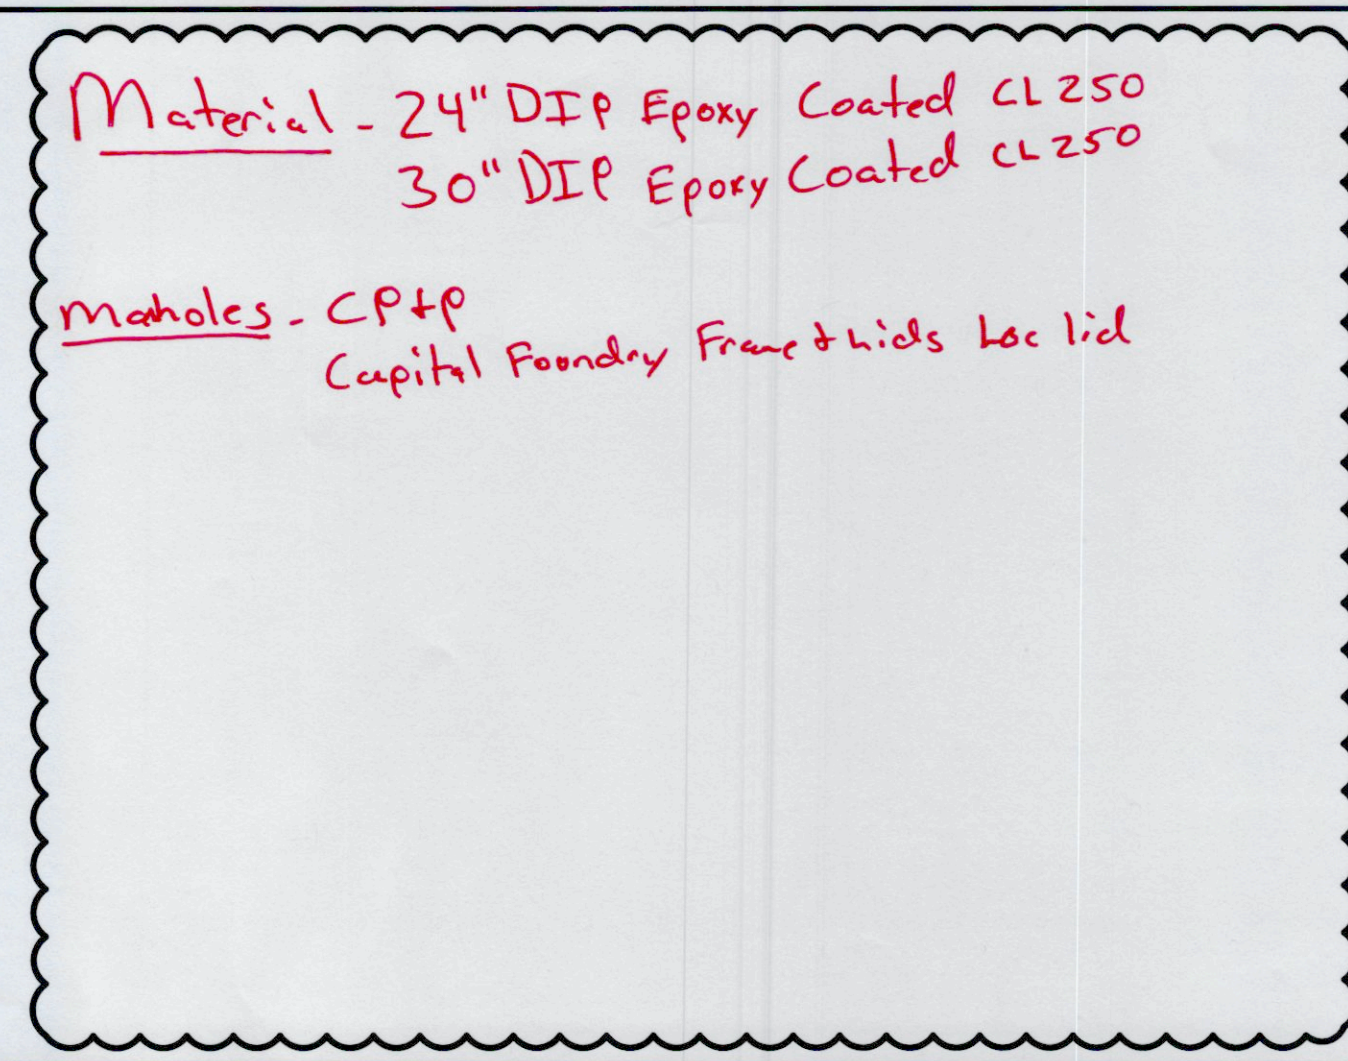 Material - 24" DIP Epoxy Coated CL 250
30" DIP Epoxy Coated CL 250
Maholes - CP+P
Capital Foundry Frame + Lids Loc lid